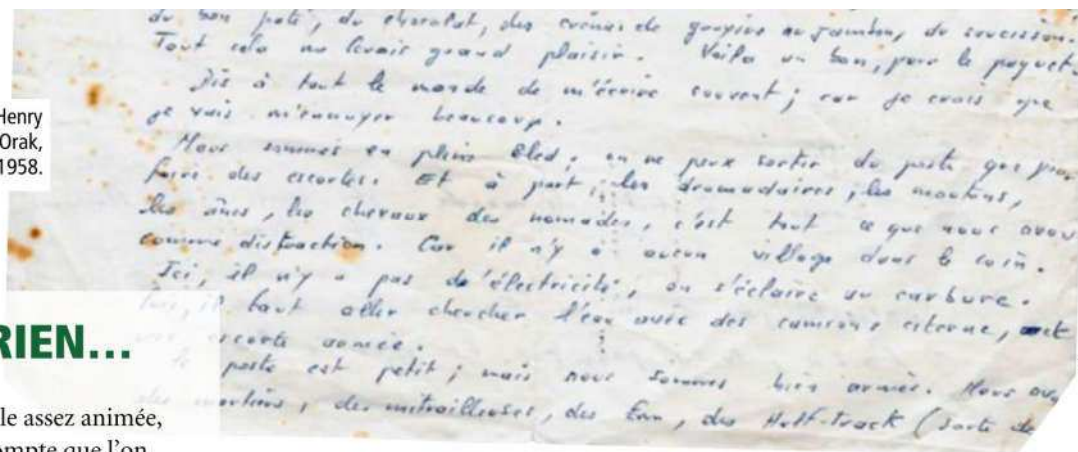 du bon paté, du chocolat, des crèmes de gruyère au jambon, du saucisson.
Tout cela me ferais grand plaisir. Voila un bon, pour le paquet.
Dis à tout le monde de m'écrire souvent ; car je crois que
je vais m'ennuyer beaucoup.
Nous sommes en plein Bled, on ne peux sortir du poste que pour
faire des escortes. Et à part, les dromadaires, les moutons,
les ânes, les chevaux des nomades, c'est tout ce que nous avons
comme distraction. Car il n'y a aucun village dans le coin.
Ici, il n'y a pas de l'électricité, on s'éclaire au carbure.
il faut aller chercher l'eau avec des camions citerne, et
escorte armée.
poste est petit ; mais nous sommes bien armée. Nous av
des mortiers, des mitrailleuses, des Half-track (sorte de
Henry
Orak,
1958.
RIEN...
le assez animée,
ompte que l'on